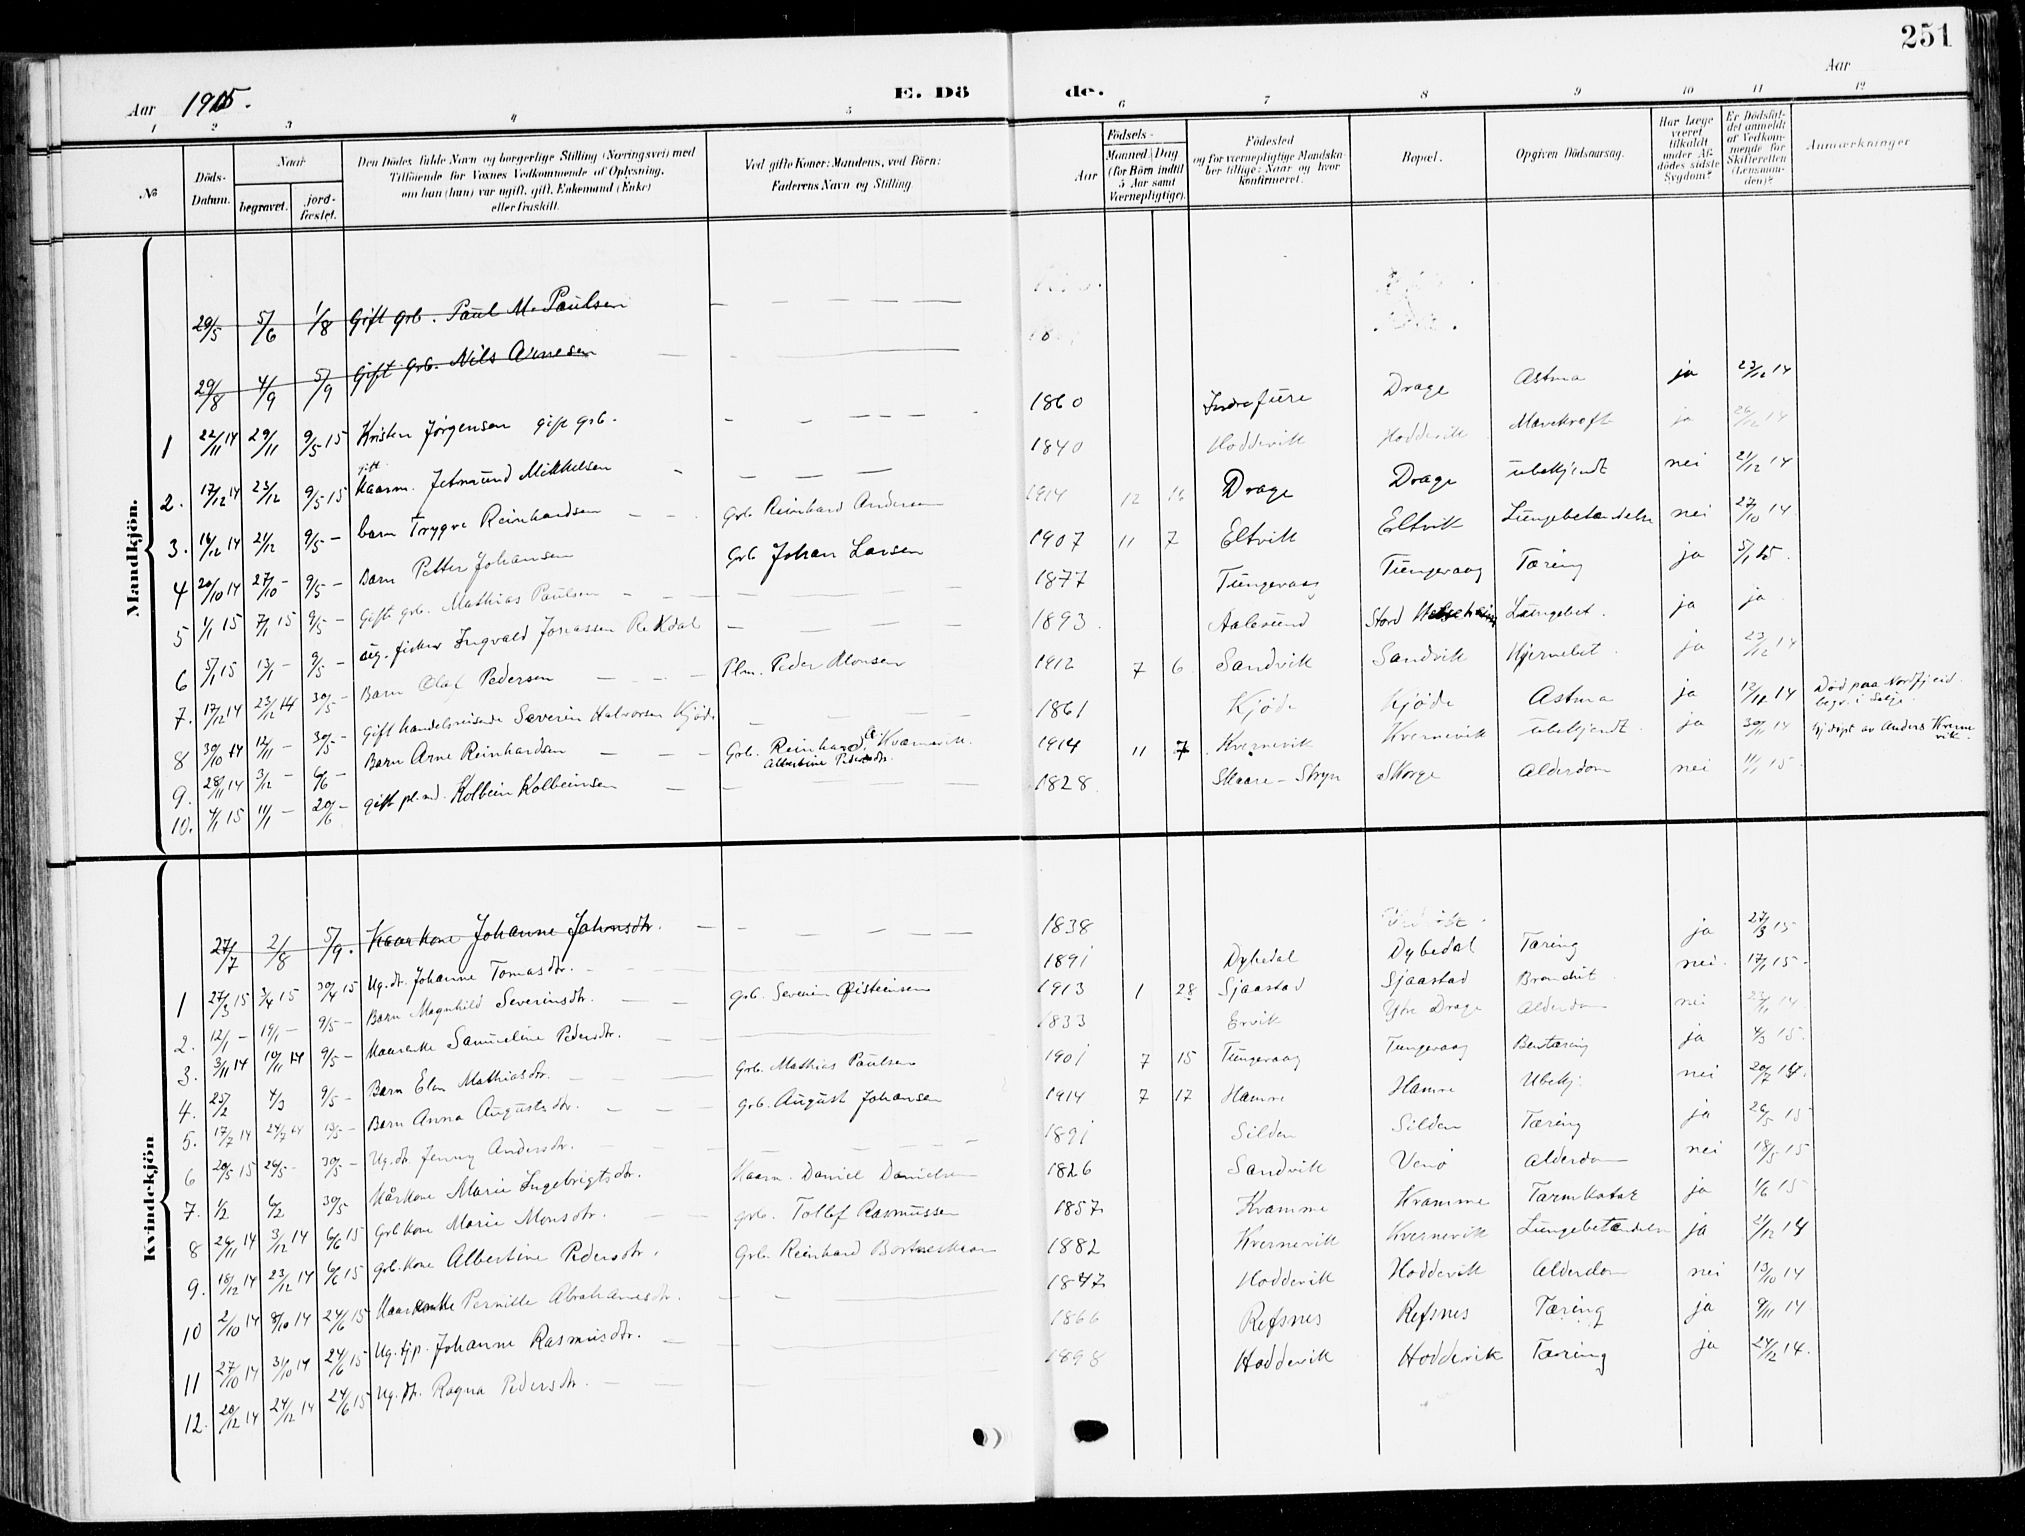 251
Aar 1915.
E. Dö de.
Aar
1 2 3 4 5 6 7 8 9 10 11 12
No
Döds-Datum.
Naar
begravet.
jordfæstet.
Den Dödes fulde Navn og borgerlige Stilling (Næringsvei) med Tilföiende for Voxnes Vedkommende af Oplysning, om han (hun) var ugift, gift, Enkemand (Enke) eller fraskilt.
Ved gifte Koner: Mandens, ved Börn: Faderens Navn og Stilling
Aar
Födsels-
Maaned Dag (for Börn indtil 5 Aar samt Værnepligtige).
Födested og for værnepligtige Mandskaber tillige: Naar og hvor konfirmeret.
Bopæl.
Opgiven Dödsaarsag.
Har Læge været tilkaldt under Afdödes sidste Sygdom?
Er Dödsfaldet anmeldt af Vedkommende for Skifteretten (Lensmanden)?
Anmærkninger
Mandkjön.
29/5 5/6 1/8 Gift grb. Paul M. Paulsen
29/8 4/9 5/9 Gift grb. Nils Arnesen
1 22/11 14 29/11 9/5 15 Kristen Jørgensen gift grb. 1860 Indre fure Drage Astma ja 23/12 14
2. 17/12 14 23/12 9/5 15 gift Kaarm. Jetmund Mikkelsen 1840 Hoddevik Hoddevik Mavekræft ja 26/12 14
3. 16/12 14 21/12 9/5 – barn Trygve Reinhardsen grb. Reinhard Andersen 1914 12 Drage Drage ubekjendt nei 21/12 14
4 20/10 14 27/10 – 9/5 – Barn Petter Johansen Grb Johan Larsen 1907 11 7 Eltvik Eltvik Lungebetændelse nei 27/10 14.
5 1/1 15 7/1 15 9/5 – Gift grb. Mathias Paulsen 1877 Tungevaag Tungevaag Tæring ja 5/1 15.
6 5/1 15 13/1 – 9/5 – ug. fisker Ingvald Jonassen Rekdal 1893. Aalesund Stord Lungebet. ja ja
7. 17/12 14 23/12 14 30/5 – Barn Olaf Pedersen Plm. Peder Monsen 1912 7 6 Sandvik Sandvik Hjernebet. ja 23/12 14
8 30/10 14 12/11 – 30/5 – Gift handelsreisende Severin Halvorsen Kjøde 1861 Kjøde Kjøde Astma ja 12/11 14 Død paa Nordfjeid. begr. i Selje.
9. 28/11 14 3/12 – 6/6 – Barn Arne Reinhardsen Grb. Reinhard A. Kvernevik. Albertine Pedersdtr. 1914 11 7 Kvernevik Kvernevik ubekjendt. ja 30/11 14 hj.døpt av Anders Kvernevik.
10. 4/1 15 11/1 – 20/6 – gift pl.md. Kolbein Kolbeinsen 1828. Skaare – Stryn Skorge Alderdom nei 11/1 15 –
Kvindekjön
27/7 2/8 5/9. Kaarkone Johanne Jahnsdtr. 1838
1 27/3 15 3/4 15 30/4 15 Ug. dtr. Johanne Tomasdtr. 1891 Dybedal Dybedal Tæring ja 27/3 15
2. 12/1 – 19/1 – 9/5 – Barn Magnhild Severinsdtr. grb. Severin Øisteinsen 1913 1 28 Sjaastad Sjaastad Bronchit. nei. 17/1 15.
3. 3/11 14 10/11 14 9/5 – Kaarenke Samueline Pedersdtr. 1833 Ervik Ytre Drage Alderdom nei 23/11 14.
4. 25/2 4/3 9/5 – Barn Elen Mathiasdtr. Grb. Mathias Paulsen 1901 7 15 Tungevaag Tungevaag Bentæring ja 4/3 15.
5. 17/7 14 24/7 14 13/5 – Barn Anna Augustsdtr. grb. August Johansen 1914 7 17 Hamre Hamre Ubekj. nei 20/7 14.
6 20/5 15 26/5 – 30/5 – Ug. dtr. Jenny Andersdtr. 1891 Silden Silden Tæring ja 26/5 15
7. 1/2 6/2 30/5 Kårkone Marie Ingebrigtsdtr. Kaarm. Daniel Danielsen 1826 Sandvik Venø Alderdom nei 18/5 15
8 26/11 14 3/12 14 6/6 15 Grb kone Marie Monsdtr. grb. Tollef Rasmussen 1857 Kramme Kramme Tarmkatar ja 1/6 15
9. 18/12 14 23/12 14 6/6 15 grb. kone Albertine Pedersdtr. Grb. Reinhard 1882 Kvernevik Kvernevik Lungebetændelse ja 21/12 14
10 2/10 14 8/10 14 24/6 15 Kaarenke Pernille Abrahamsdtr. 1847 Hoddevik Hoddevik Alderdom nei 13/10 14
11 27/10 14 31/10 14 24/6 15 Ug. tjp. Johanne Rasmusdtr. 1866 Refsnes Refsnes Tæring ja 9/11 14.
12. 20/12 14 24/12 14 24/6 15 Ug. dtr. Ragna Pedersdtr. 1898 Hoddevik Hoddevik Tæring ja 24/12 14.